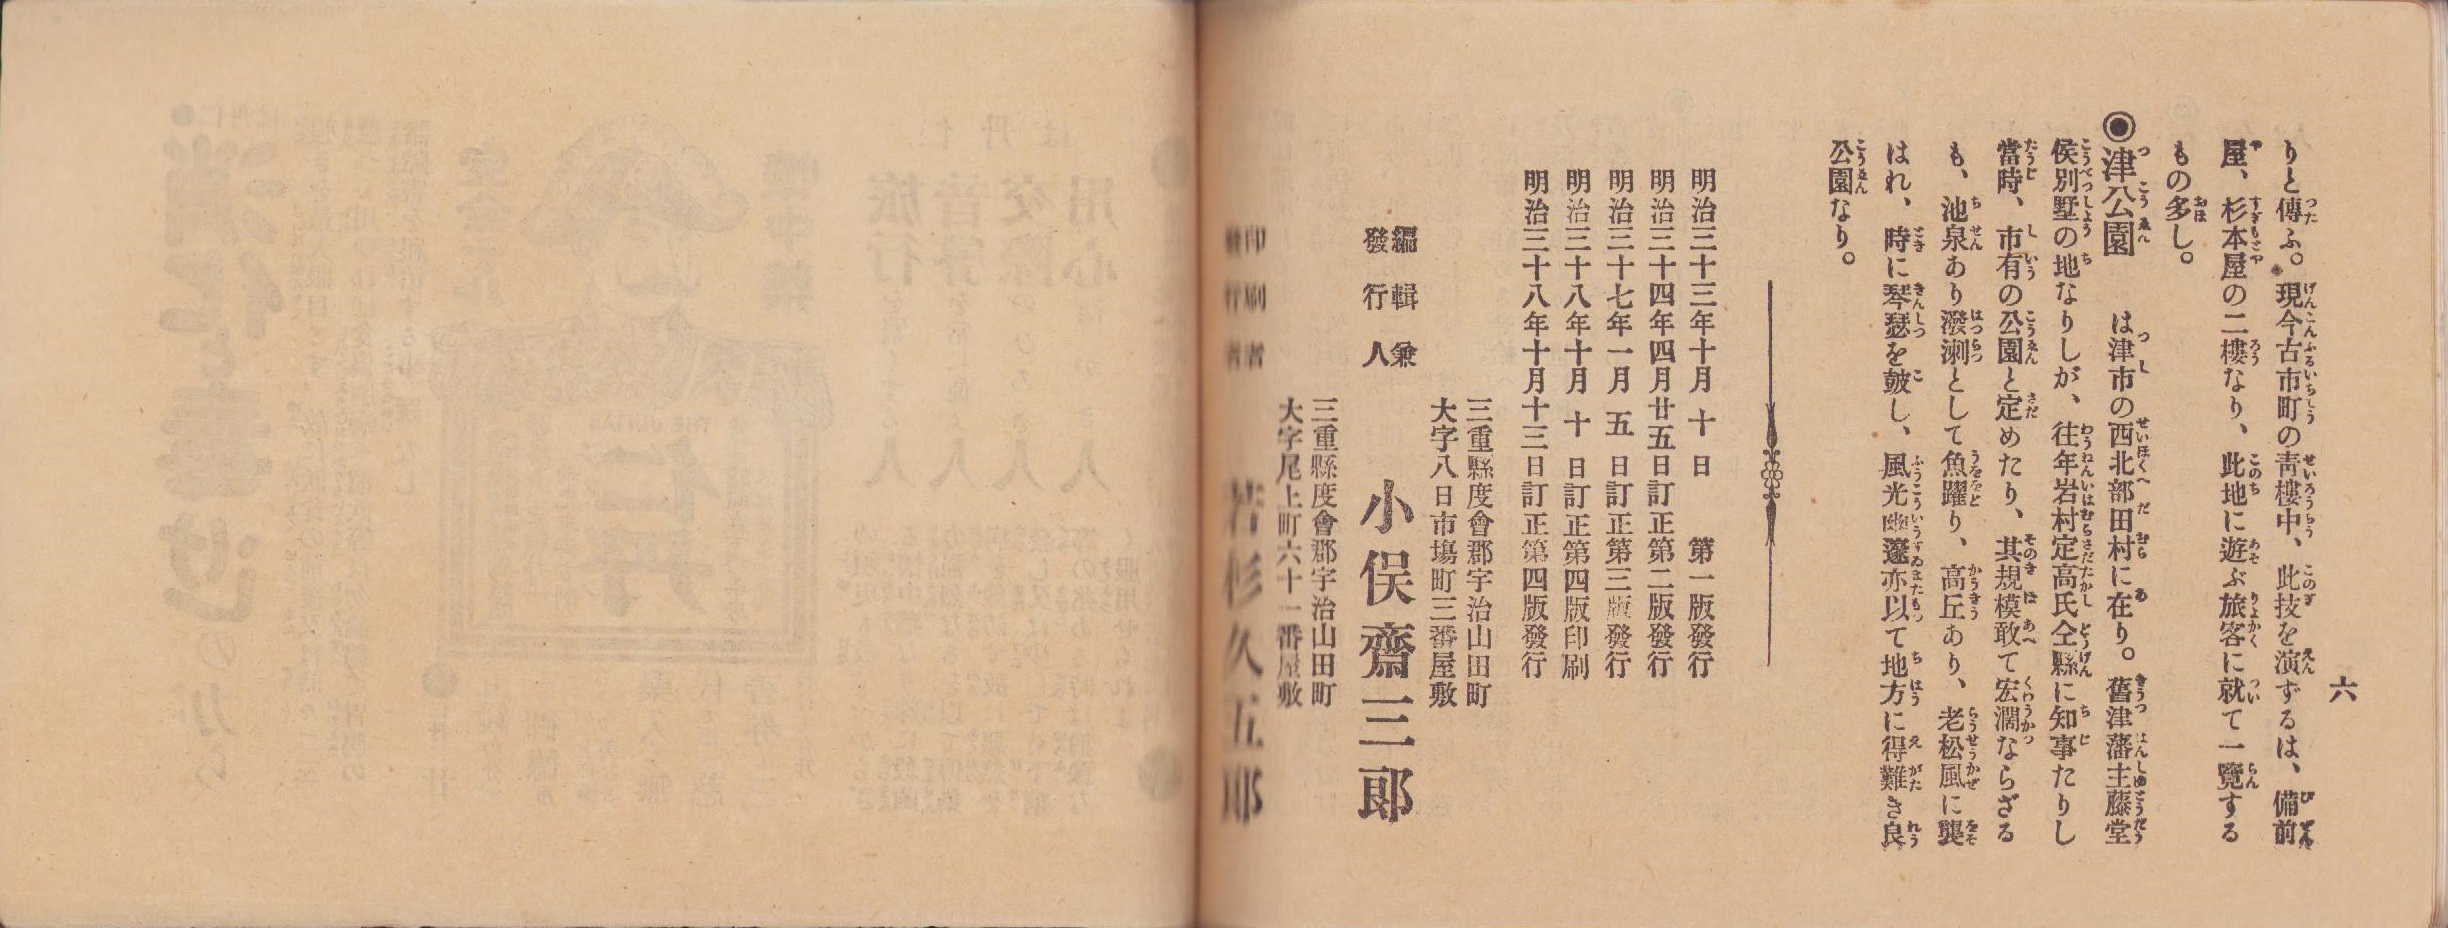 六
りと傳ふ。現今古市町の靑樓中、此技を演ずるは、備前
屋、杉本屋の二樓なり、此地に遊ぶ旅客に就て一覽する
もの多し。
◉津公園　は津市の西北部田村に在り。舊津藩主藤堂
侯別墅の地なりしが、往年岩村定高氏仝縣に知事たりし
當時、市有の公園と定めたり、其規模敢て宏濶ならざる
も、池泉あり潑溂として魚躍り、高丘あり、老松風に襲
はれ、時に琴瑟を皷し、風光幽邃亦以て地方に得難き良
公園なり。
明治三十三年十月十日　第一版發行
明治三十四年四月廿五日訂正第二版發行
明治三十七年一月五日訂正第三版發行
明治三十八年十月十日訂正第四版印刷
明治三十八年十月十三日訂正第四版發行
三重縣度會郡宇治山田町
大字八日市塲町三番屋敷
編輯兼
發行人　小俣齋三郎
三重縣度會郡宇治山田町
大字尾上町六十一番屋敷
印刷者
若杉久五郎